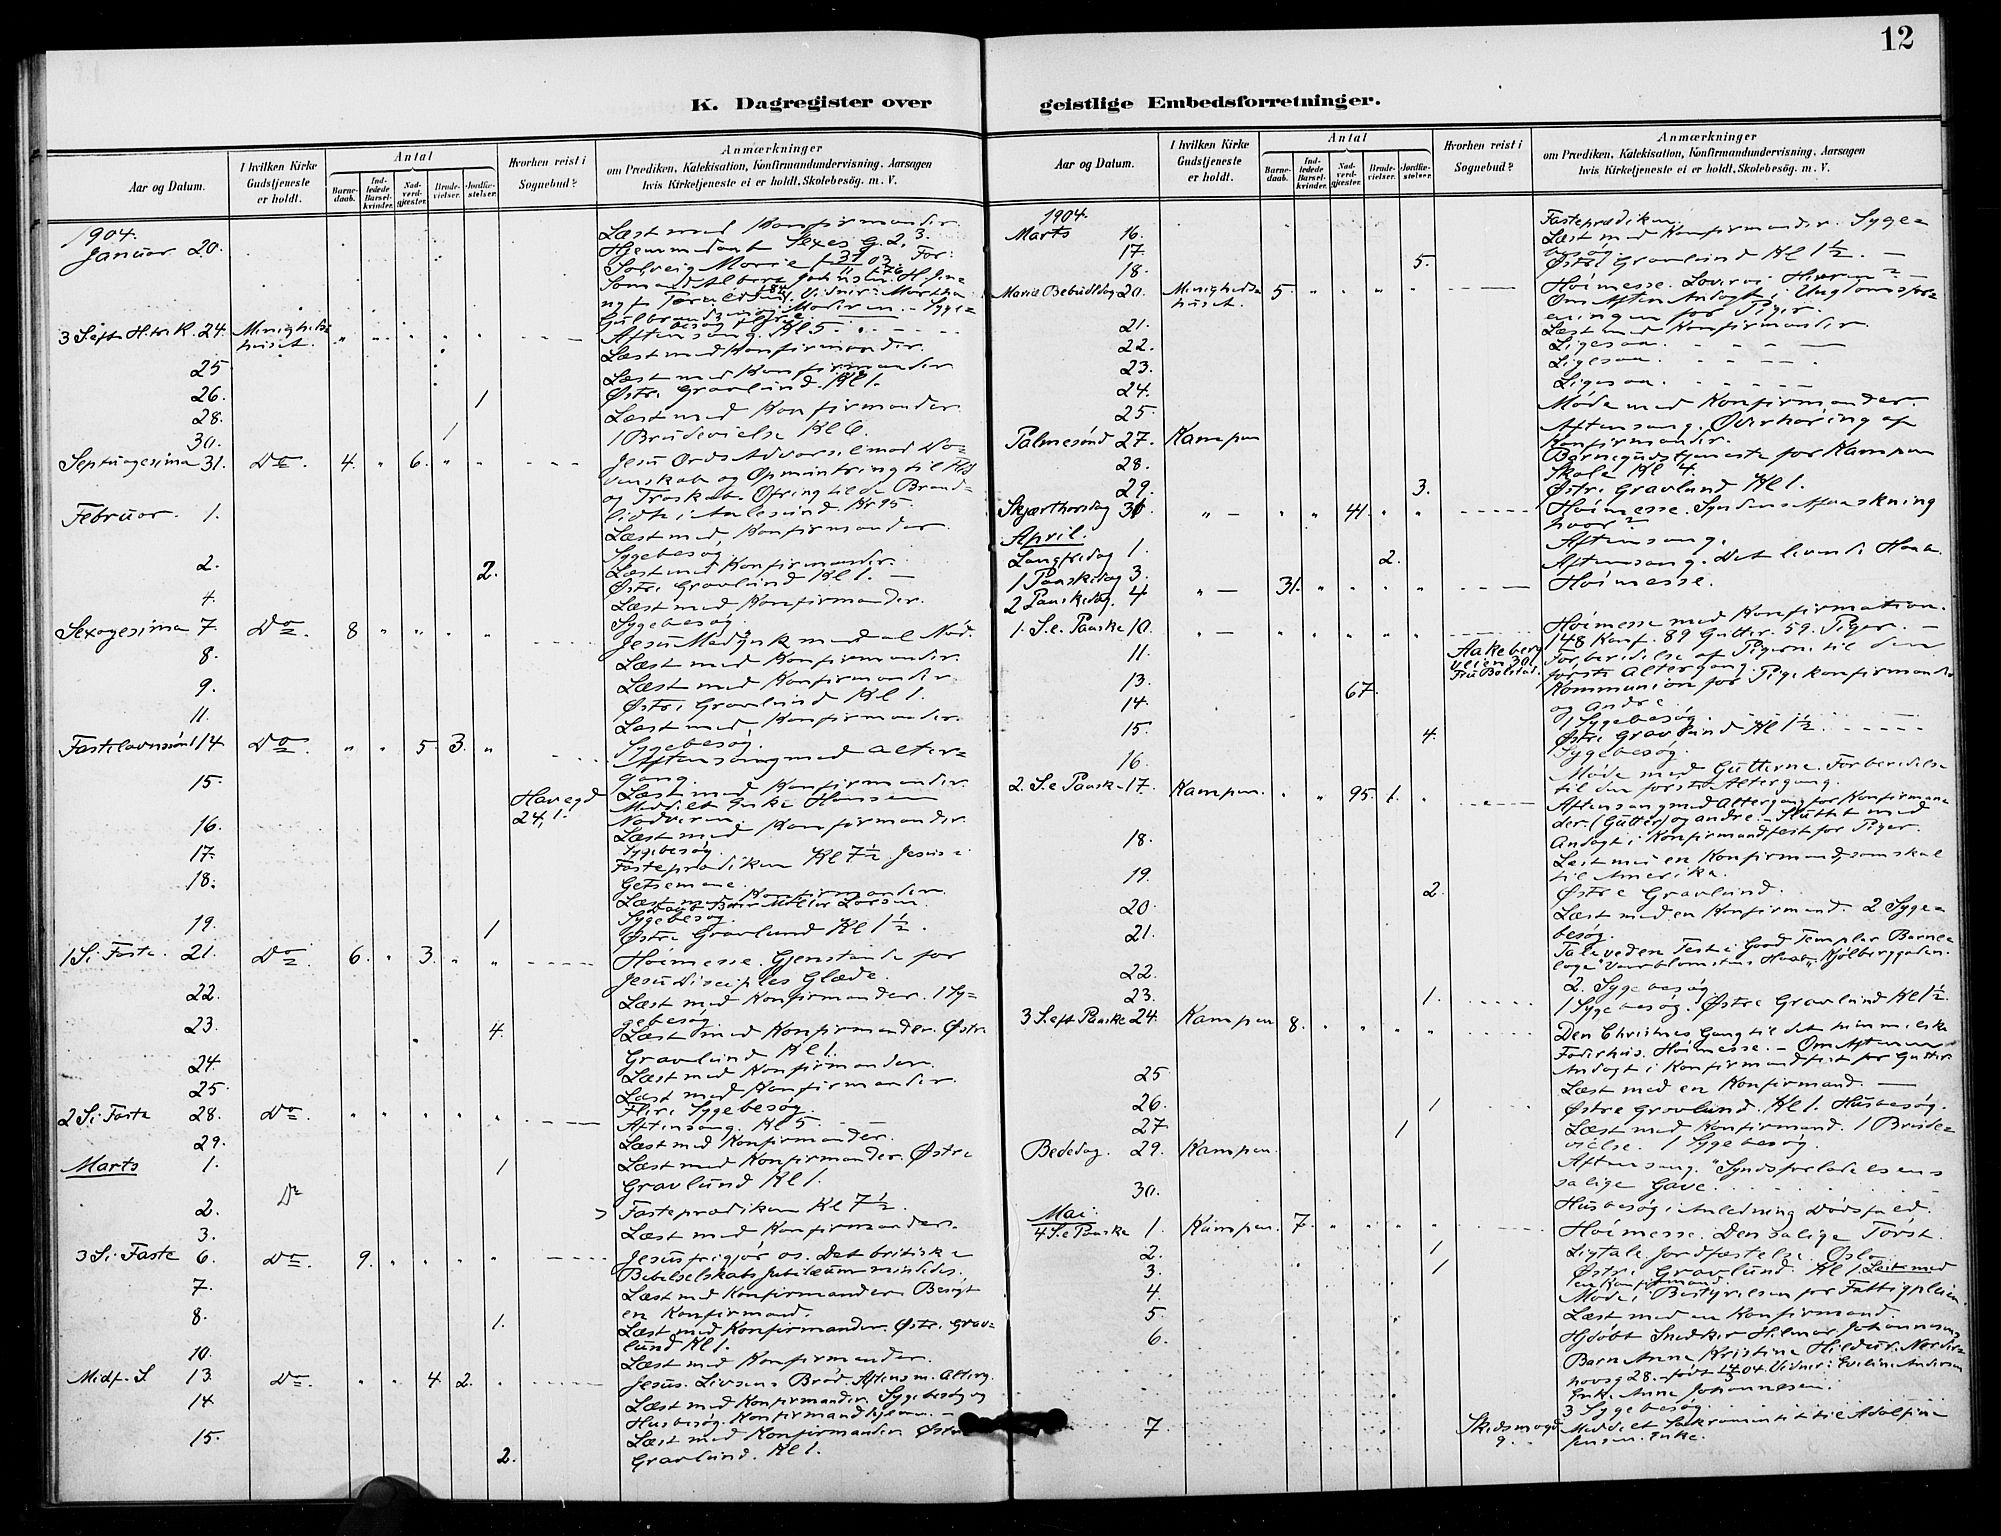 12
K. Dagregister over
geistlige Embedsforretninger.
Aar og Datum.
I hvilken Kirke Gudstjeneste er holdt.
Antal
Barnedaab.
Indledede Barselkvinder.
Nadverdgjester.
Brudevielser.
Jordfæstelser.
Hvorhen reist i Sognebud?
Anmærkninger
om Prædiken, Katekisation, Konfirmandundervisning, Aarsagen
hvis Kirketjeneste ei er holdt, Skolebesøg. m. V.
1904.
Januar 20. Læst med Konfirmander.
3 S. eft. H. tr. K. 24. Menigheds huset. Aftensang. Kl 5
Læst med Konfirmander.
25 Læst med Konfirmander
26. 1 Østre Gravlund. Kl 1.
28. Læst med Konfirmander.
30. 1 1 Brudevielse Kl 6.
Septuagesima 31. Do. 4. " 6. " " Jesu Ords Advarsel mod
og Opmuntring til
og Troskab. Ofring til de Brand-
lidte i Aalesund Kr 95.
Februar. 1. Læst med Konfirmander.
Sygebesøg.
2. 2. Læst med Konfirmander.
Østre Gravlund Kl 1.
4. Læst med Konfirmander.
Sygebesøg.
Sexagesima 7. Do. 8 " " " " Jesu Medynk med al Nød.
8. Læst med Konfirmander.
9. Læst med Konfirmander.
Østre Gravlund Kl 1.
11. Læst med Konfirmander.
Sygebesøg.
Fastelavnssønd 14 Do. " " 5. 3. " Aftensang med Alter-
gang.
15. Havegd 24, 1. Læst med Konfirmander.
Meddelt Enke Hansen
Nadveren.
16. Læst med Konfirmander.
Sygebesøg.
17. Fasteprædiken Kl 7½ Jesus i
Getsemane.
18. Læst med Konfirmander.
Sygebesøg.
19. 1 Østre Gravlund Kl 1½.
1 S. i Faste. 21. Do. 6. " 3. " " Høimesse. Gjenstande for
Jesu Disciples Glæde.
22. Læst med Konfirmander. 1 Sy-
gebesøg
23. 4. Læst med Konfirmander. Østre
Gravlund Kl 1.
24. Læst med Konfirmander.
25. Læst med Konfirmander.
Flere Sygebesøg.
2 S. i Faste 28. Do. " " " " " Aftensang. Kl 5
29. Læst med Konfirmander.
Marts 1. 1 Læst med Konfirmander. Østre
Gravlund Kl 1.
2. Do Fasteprædiken Kl 7½.
3. Læst med Konfirmander.
3 S. i Faste 6. Do. 9. " " " " Jesus frigjør os. Det britiske
Bibelselskabs Jubilæum mindedes.
7. Læst med Konfirmander. Besøgt
en Konfirmand.
8. 1. Læst med Konfirmander. Østre Grav-
lund Kl 1.
10. Læst med Konfirmander.
Midf. S. 13. Do. " " 4 2. " Jesus. Livsens Brød. Aftens m. Alterg.
14. Læst med Konfirmander. Sygebesøg og
Husbesøg. Konfirmandhjem.
15. 2. Læst med Konfirmander. Østre
Gravlund. Kl 1.
Aar og Datum.
I hvilken Kirke Gudstjeneste er holdt.
Antal
Barnedaab.
Indledede Barselkvinder.
Nadverdgjester.
Brudevielser.
Jordfæstelser.
Hvorhen reist i Sognebud?
Anmærkninger
om Prædiken, Katekisation, Konfirmandundervisning, Aarsagen
hvis Kirketjeneste ei er holdt, Skolebesøg. m. V.
1904.
Marts 16. Fasteprædiken.
17. Læst med Konfirmander. Syge-
besøg.
18. 5. Østre Gravlund Kl 1½
Mariæ Bebudelsdag 20. Menigheds huset. 5. " " " " Høimesse.
Om Aften Andagt i Ungdomsfor-
eningen for Piger.
21. Læst med Konfirmander.
22. Ligesaa.
23. Ligesaa.
24. Ligesaa.
25. Møde med Konfirmander.
Palmesønd 27. Kampen Aftensang. Overhøring af
Konfirmander.
28. Barnegudstjeneste for Kampen
Skole Kl 4.
29. 3. Østre Gravlund Kl 1.
Skjærthorsdag 31 " " " 41. " " Høimesse. Syndens Afvaskning
hvor?
April.
Langfredag 1. 2. Aftensang.
1 Paaskedag 3. " 31. " " " " Aftensang. Det levende Haab.
2 Paaskedag. 4 Høimesse.
1. S. e. Paaske 10. " " " " " " Høimesse med Konfirmation.
148 Konf. 89 Gutter. 59. Piger.
11. Aakeberg veien 30 Fru Bolstad. Forberedelse af Pigerne til den
første Altergang.
13. 67. Kommunion for Pigekonfirmander
og Andre.
14. 1 Sygebesøg.
15. 4. Østre Gravlund Kl 1½
Sygebesøg.
16. Møde med Gutterne. Forberedelse
til den første Altergang.
2. S. e Paaske 17. Kampen. " " 95. 1. " Aftensang med Altergang for Konfirman-
der. (Gutter) og andre. Sluttet med
Andagt i Konfirmandfest for Piger.
18. Læst med en Konfirmand, som skal
til Amerika.
19. 2. Østre Gravlund.
20. Læst med en Konfirmand. 2 Syge-
besøg.
21. Tale ved en Fest i Good Templar Barne-
loge "Vaarblomstens Haab" Kjølberggaden.
22. 2. Sygebesøg.
23. 1. 1 Sygebesøg. Østre Gravlund Kl 1½.
3 S. eft Paaske 24. Kampen 8. " " " " Den Christnes Gang til det himmelske
Faderhus. Høimesse. – Om Aftenen
Andagt i Konfirmandfest for Gutter
25 Læst med en Konfirmand.
26. 1 Østre Gravlund. Kl 1. Husbesøg.
27 1 Læst med Konfirmand. 1 Brude-
vielse. 1 Sygebesøg.
Bededag. 29. Kampen. Aftensang. "Syndsforladelsens
salige Gave.
30. Husbesøg i Anledning Dødsfald.
Mai.
4 S. e Paaske 1. Kampen. 7. " " " " Høimesse. Den salige Tørst.
2. 1 Ligtale Jordfæstelse. Oslo
3. 1 Østre Gravlund. Kl 1. Læst med
en Konfirmand.
4. Møde i Bestyrelsen for Fattigpleien.
5. Læst med en Konfirmand.
6. Hjdøbt Snedker Hilmar Johannesens
Barn Anna Kristine Hildur.
28. født 14/3 04. Vidner: Eveline Andersen
Enke Anna Johannesen.
3 Sygebesøg.
7 Skedsmogd 9. Meddelt Sakramentet til Adolfine
Jensen. Enke.